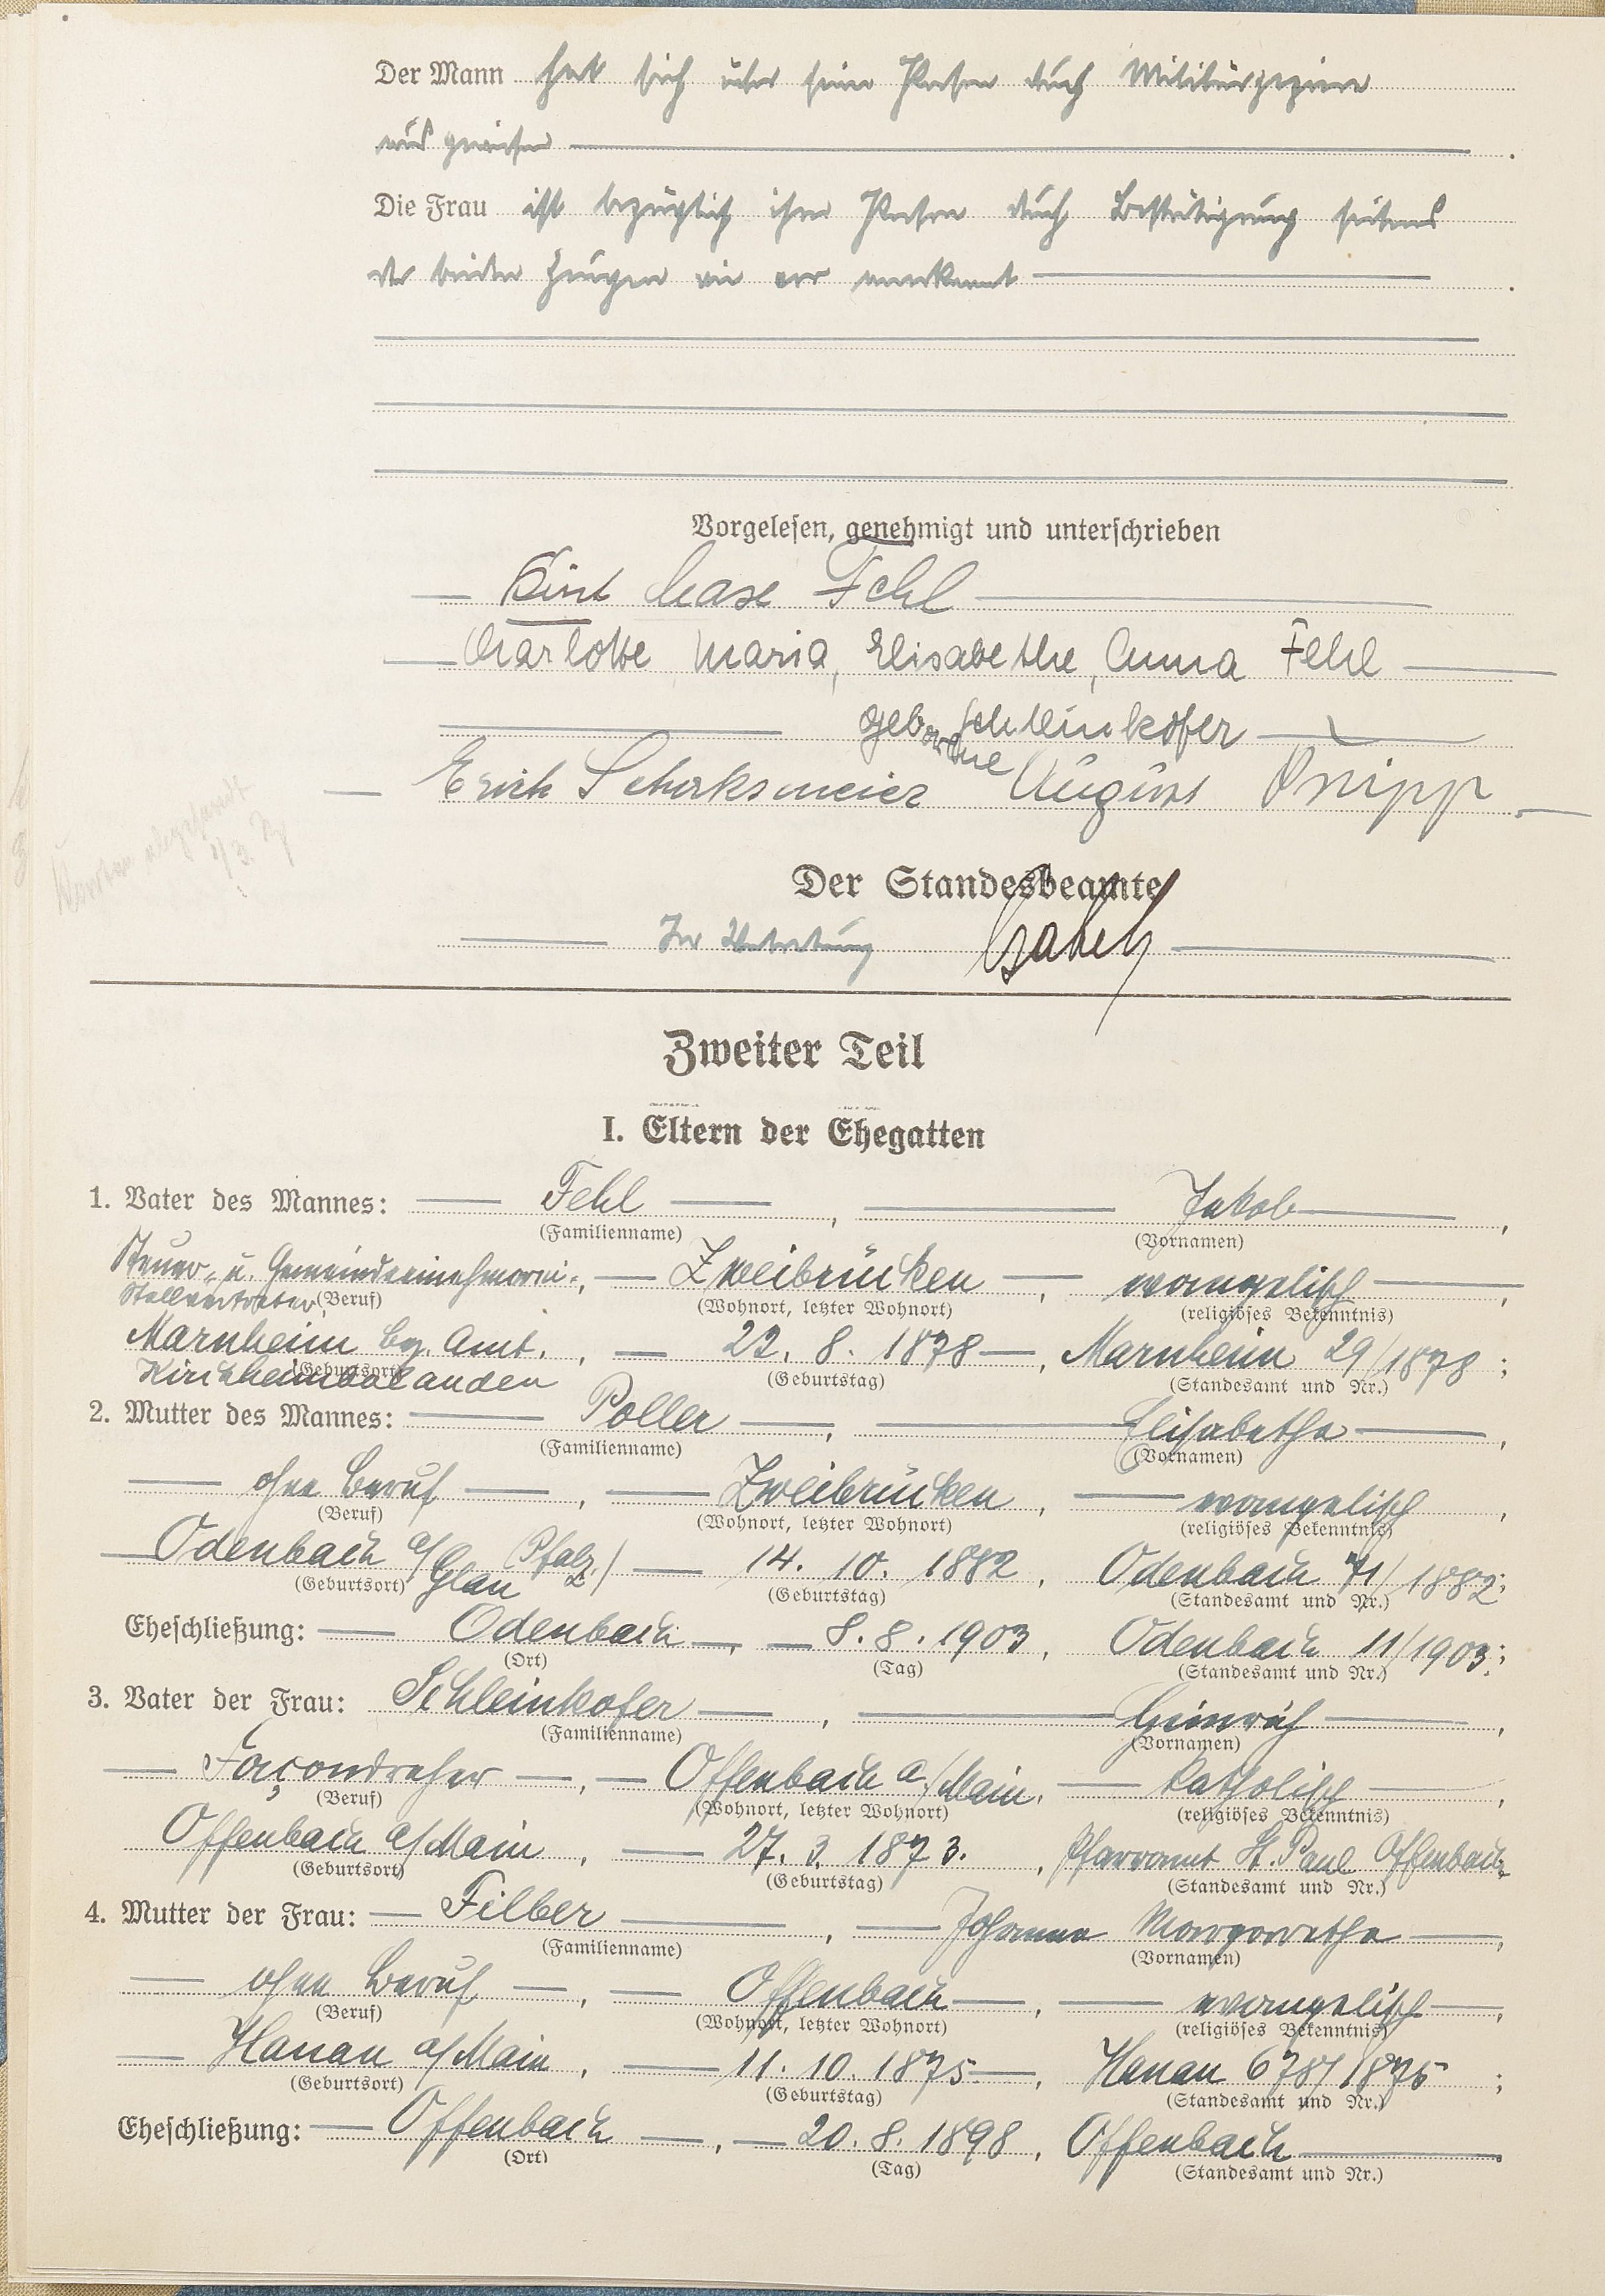 Der Mann hat sich über seine Person durch Militärpapiere
ausgewiesen
Die Frau ist bezüglich ihrer Person durch Bestätigung seitens
der beiden Zeugen wie vor anerkannt
Vorgelesen, genehmigt und unterschrieben
Fehl
Charlotte, Maria, Elisabethe, Anna Fehl
geborene Schleinkofer
Erich August
Der Standesbeamte
In Vertretung
Zweiter Teil
I. Eltern der Ehegatten
1. Vater des Mannes: Fehl, Jakob,
(Familienname) (Vornamen)
Steuer- u. Gemeindeeinnehmerei-, Zweibrücken, evangelisch,
Stellvertreter (Beruf) (Wohnort, letzter Wohnort) (religiöses Bekenntnis)
Marnheim Bez. Amt., 22. 8. 1878, Marnheim 29/1878;
Kirchheimbolanden (Geburtsort) (Geburtstag) (Standesamt und Nr.)
2. Mutter des Mannes: Poller, Elisabetha,
(Familienname) (Vornamen)
ohne Beruf, Zweibrücken, evangelisch,
(Beruf) (Wohnort, letzter Wohnort) (religiöses Bekenntnis)
Odenbach a/Glan (Pfalz) 14. 10. 1882, Odenbach 71/1882;
(Geburtsort) (Geburtstag) (Standesamt und Nr.)
Eheschließung: Odenbach, 8. 8. 1903, Odenbach 11/1903;
(Ort) (Tag) (Standesamt und Nr.)
3. Vater der Frau: Schleinkofer, Heinrich,
(Familienname) (Vornamen)
Façondreher, Offenbach a/Main, katholisch,
(Beruf) (Wohnort, letzter Wohnort) (religiöses Bekenntnis)
Offenbach a/Main, 27. 3. 1873., Pfarramt St. Paul Offenbach
(Geburtsort) (Geburtstag) (Standesamt und Nr.)
4. Mutter der Frau: Filber, Johanna Margarethe,
(Familienname) (Vornamen)
ohne Beruf, Offenbach, evangelisch,
(Beruf) (Wohnort, letzter Wohnort) (religiöses Bekenntnis)
Hanau a/Main, 11. 10. 1875, Hanau 678/1875;
(Geburtsort) (Geburtstag) (Standesamt und Nr.)
Eheschließung: Offenbach, 20. 8. 1898, Offenbach.
(Ort) (Tag) (Standesamt und Nr.)